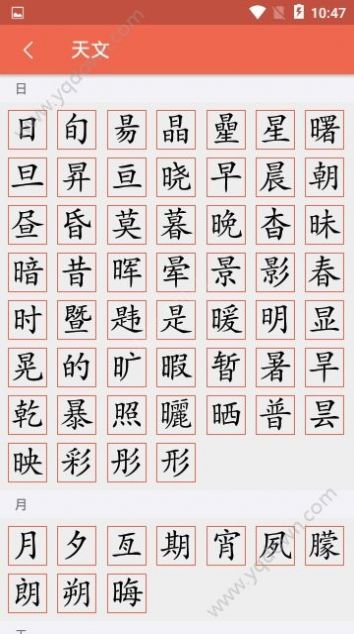 10:47
天文
日
日 旬 昜 晶 曐 星 曙
旦 昇 亘 晓 早 晨 朝
昼 昏 莫 暮 晚 杳 昧
暗 昔 晖 晕 景 影 春
时 暨 韪 是 暖 明 显
晃 的 旷 暇 暂 暑 旱
乾 暴 照 曬 晒 普 昙
映 彩 彤 形
月
月 夕 亙 期 宵 夙 朦
朗 朔 晦
www.yqdown.com
www.yqdown.com